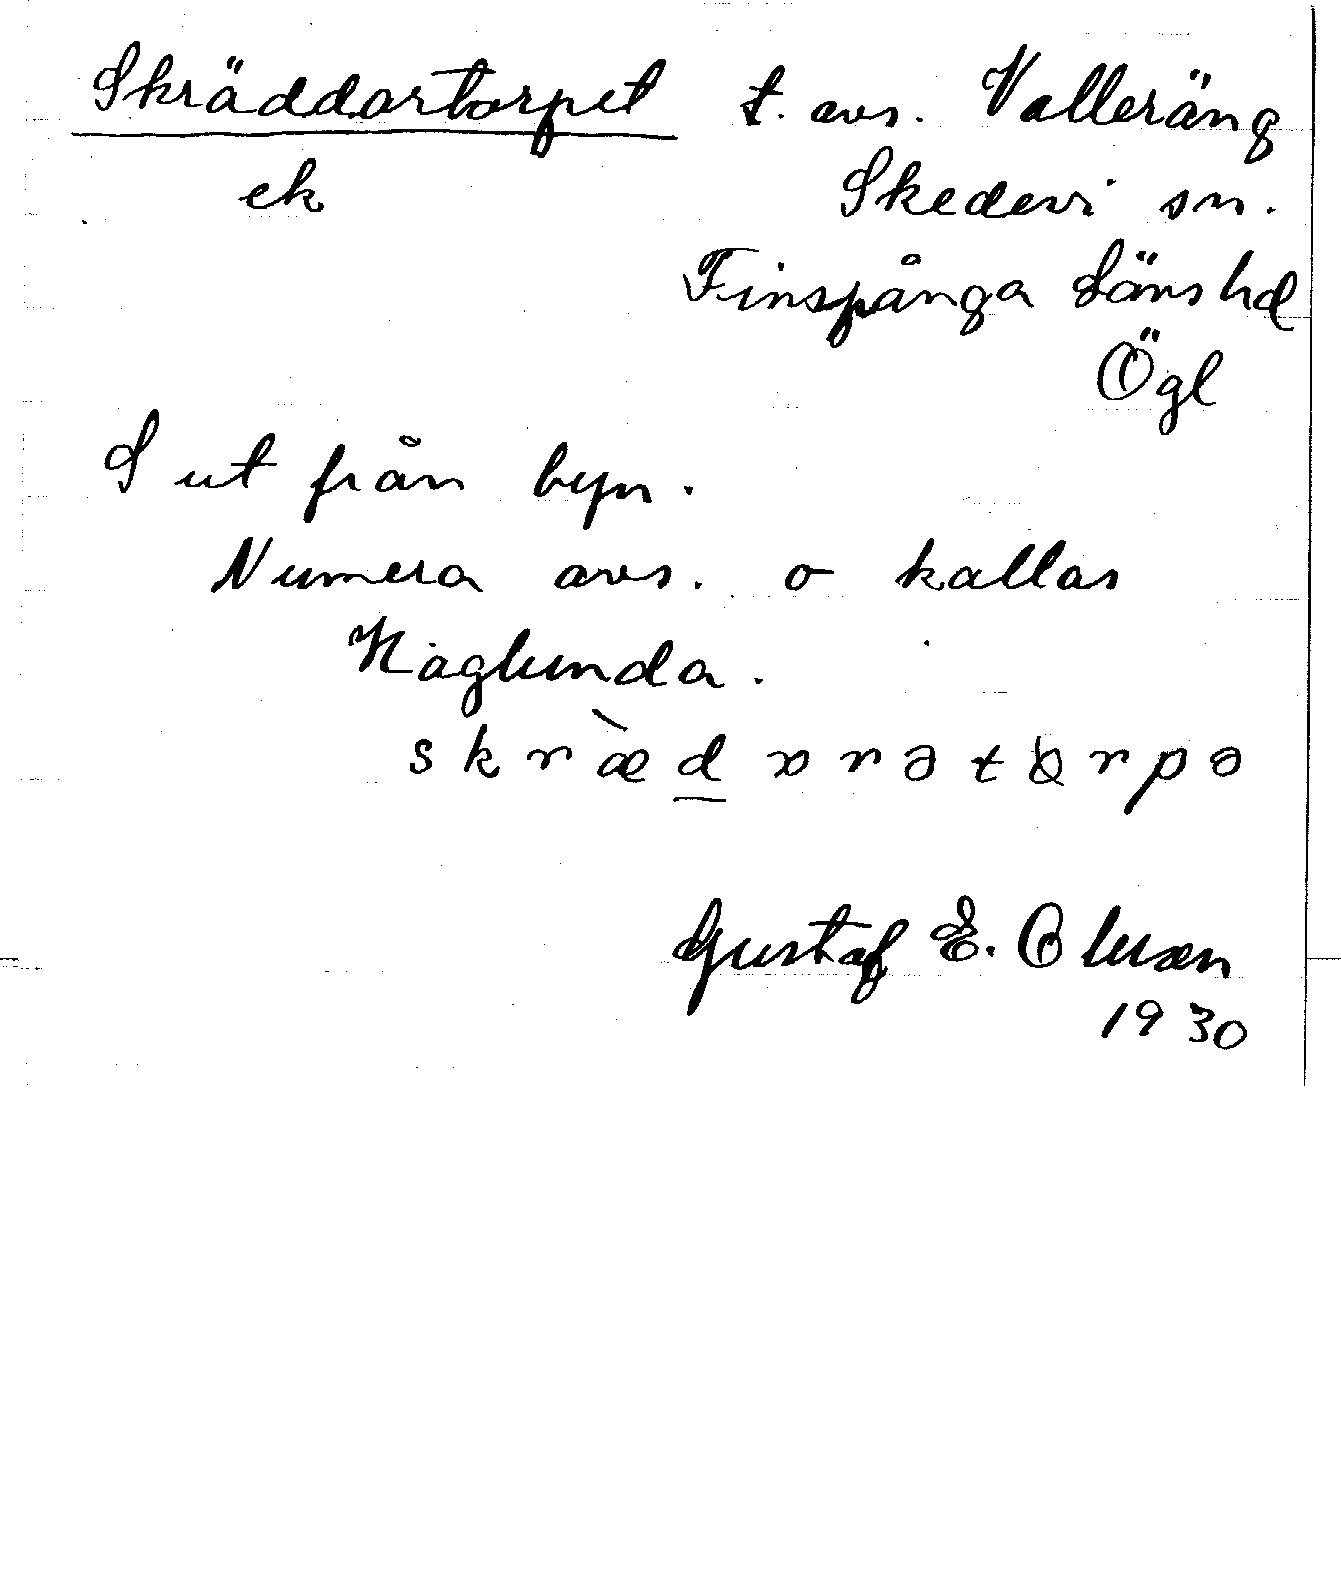 Skräddartorpet t. avs. Valleräng
ek Skedevi sn.
Finspånga Läns hd
Ögl
S ut från byn.
Numera avs. o kallas
Haglunda.
skræ̀d̲ɒrətɔrpə
Gustaf E. Olsson
1930